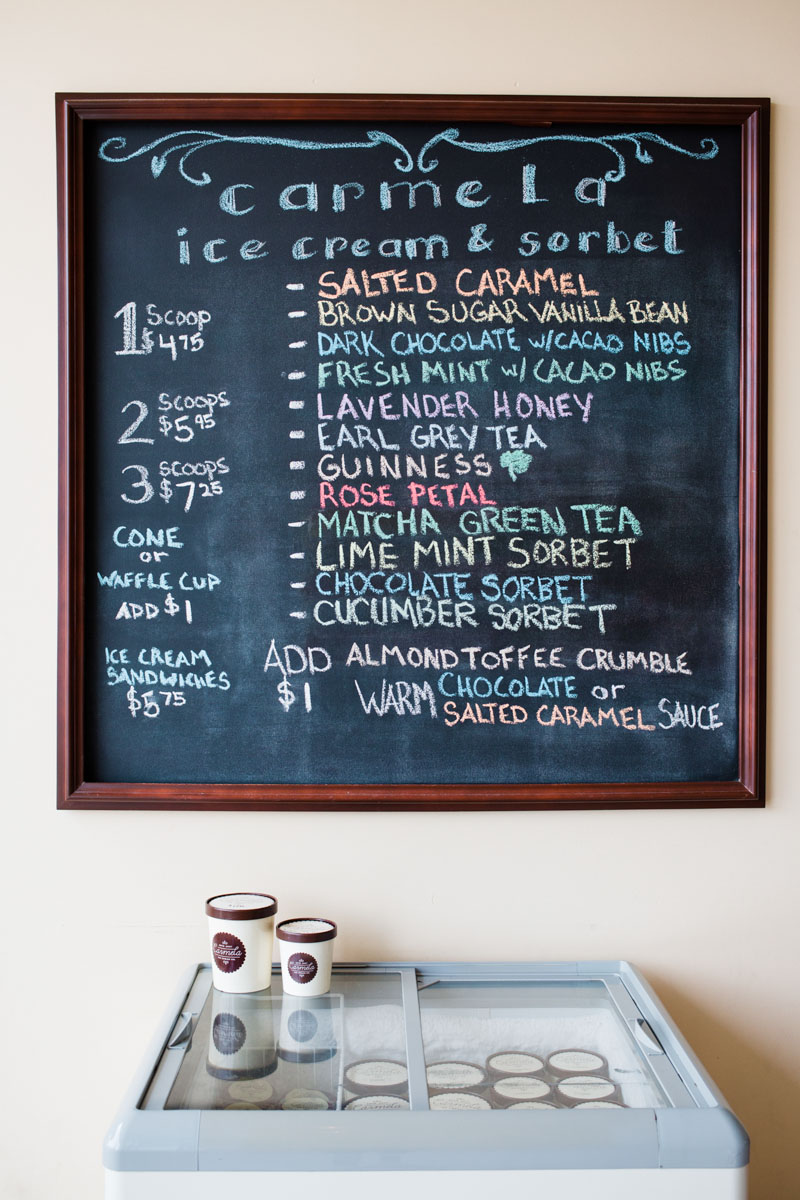 carmela
ice cream & sorbet
1 SCOOP
$4.75
2 SCOOPS
$5.95
3 SCOOPS
$7.25
CONE
or
WAFFLE CUP
ADD $1
ICE CREAM
SANDWICHES
$5.75
- SALTED CARAMEL
- BROWN SUGAR VANILLA BEAN
- DARK CHOCOLATE w/CACAO NIBS
- FRESH MINT w/CACAO NIBS
- LAVENDER HONEY
- EARL GREY TEA
- GUINNESS
- ROSE PETAL
- MATCHA GREEN TEA
- LIME MINT SORBET
- CHOCOLATE SORBET
- CUCUMBER SORBET
ADD $1
ALMOND TOFFEE CRUMBLE
WARM CHOCOLATE or SALTED CARAMEL SAUCE
Carmela
Carmela